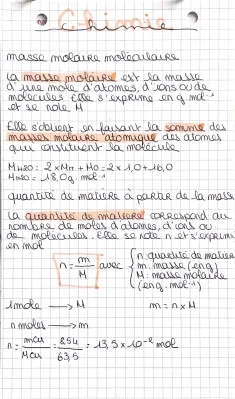 Chimie
masse molaire moléculaire
La masse molaire est la masse
d'une mole d'atomes, d'ions ou de
molécules. Elle s'exprime en g.mol⁻¹
et se note M
Elle s'obtient en faisant la somme des
masses molaire atomique des atomes
qui constituent la molécule
MH2O = 2×MH + MO = 2×1,0+16,0
MH2O = 18,0 g.mol⁻¹
quantité de matière à partir de la masse
La quantité de matière correspond au
nombre de moles d'atomes, d'ions ou
de molécules. Elle se note n et s'exprime
en mol
n = m/M avec { n quantité de matière
m: masse (en g)
M: masse molaire
(en g.mol⁻¹)
1 mole → M m = n × M
n moles → m
n = mCu/MCu = 854/63,5 = 13,5 × 10⁻² mol